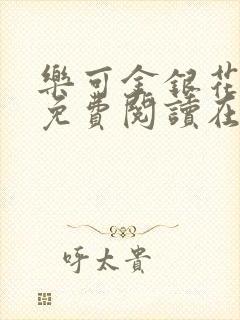 樂可金銀花
免費閱讀在
呼太貴